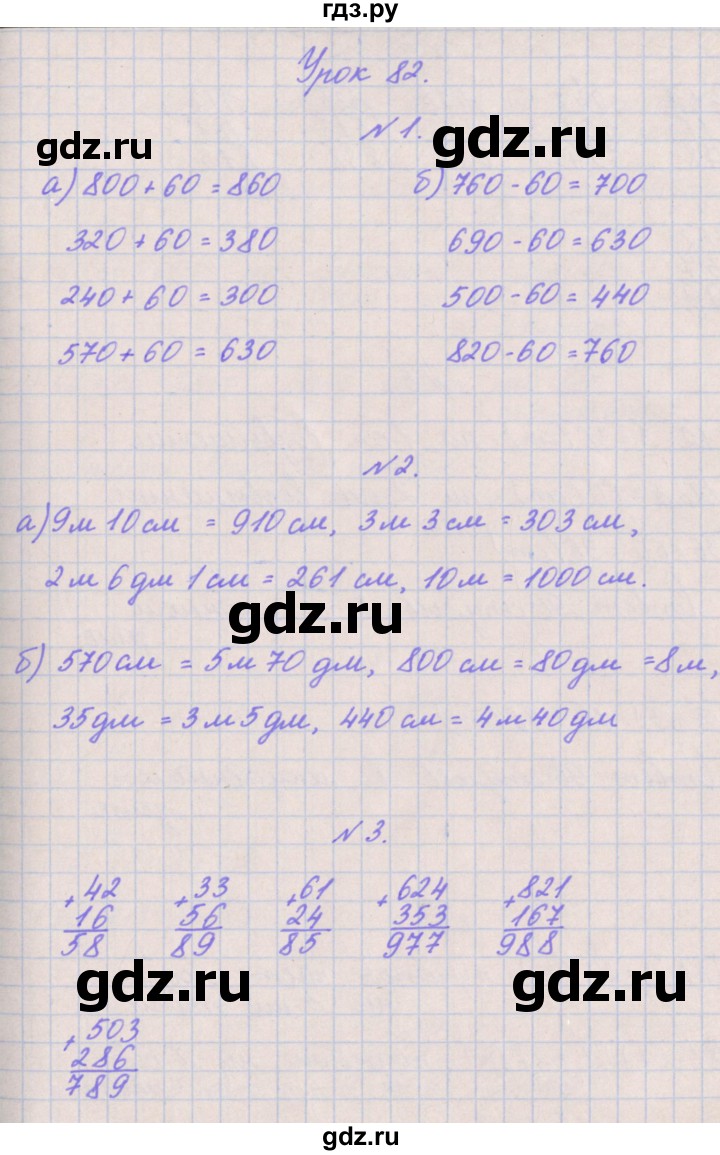 гдз.ру
Урок 82.
gdz.ru
№1.
gdz.ru
а) 800 + 60 = 860
б) 760 - 60 = 700
320 + 60 = 380
690 - 60 = 630
240 + 60 = 300
500 - 60 = 440
570 + 60 = 630
820 - 60 = 760
№2.
а) 9м 10см = 910см, 3м 3см = 303см,
2м 6дм 1см = 261см, 10м = 1000см.
gdz.ru
б) 570см = 5м 70дм, 800см = 80дм = 8м,
35дм = 3м 5дм, 440см = 4м 40дм
№3.
+42 +33 +61 +624 +821
16 56 24 353 167
58 89 85 977 988
gdz.ru gdz.ru
+503
286
789
gdz.ru